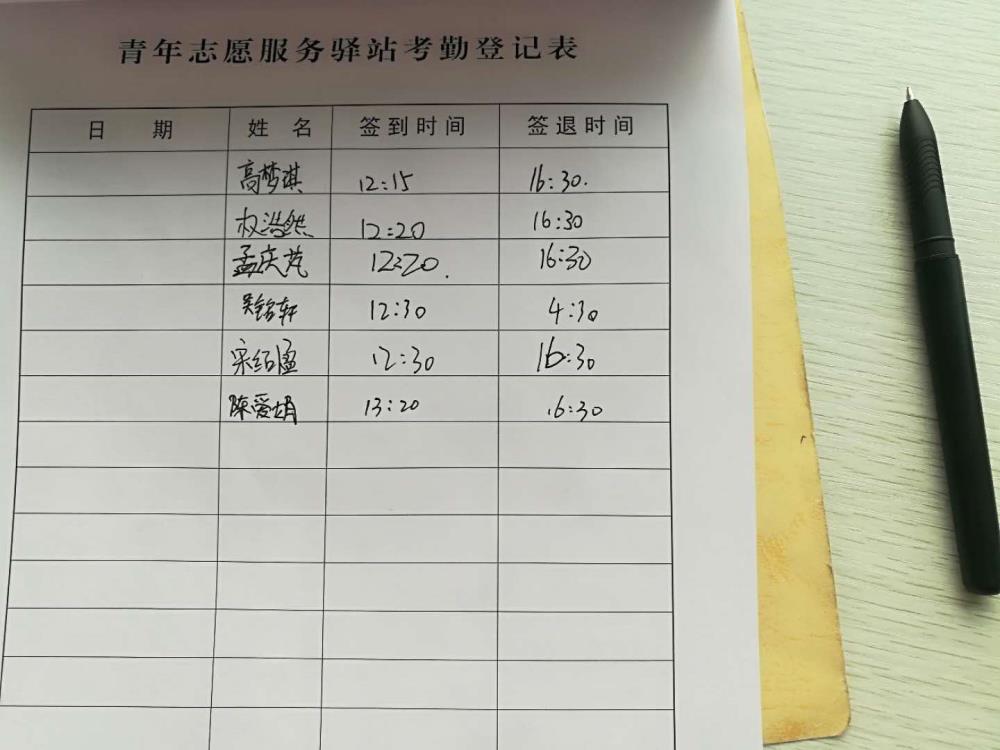 青年志愿服务驿站考勤登记表
日 期 姓 名 签到时间 签退时间
高梦琪 12:15 16:30.
权浩然 12:20 16:30
孟庆芃 12:20. 16:30
吴铭轩 12:30 4:30
宋绍盈 12:30 16:30
陈爱娟 13:20 16:30